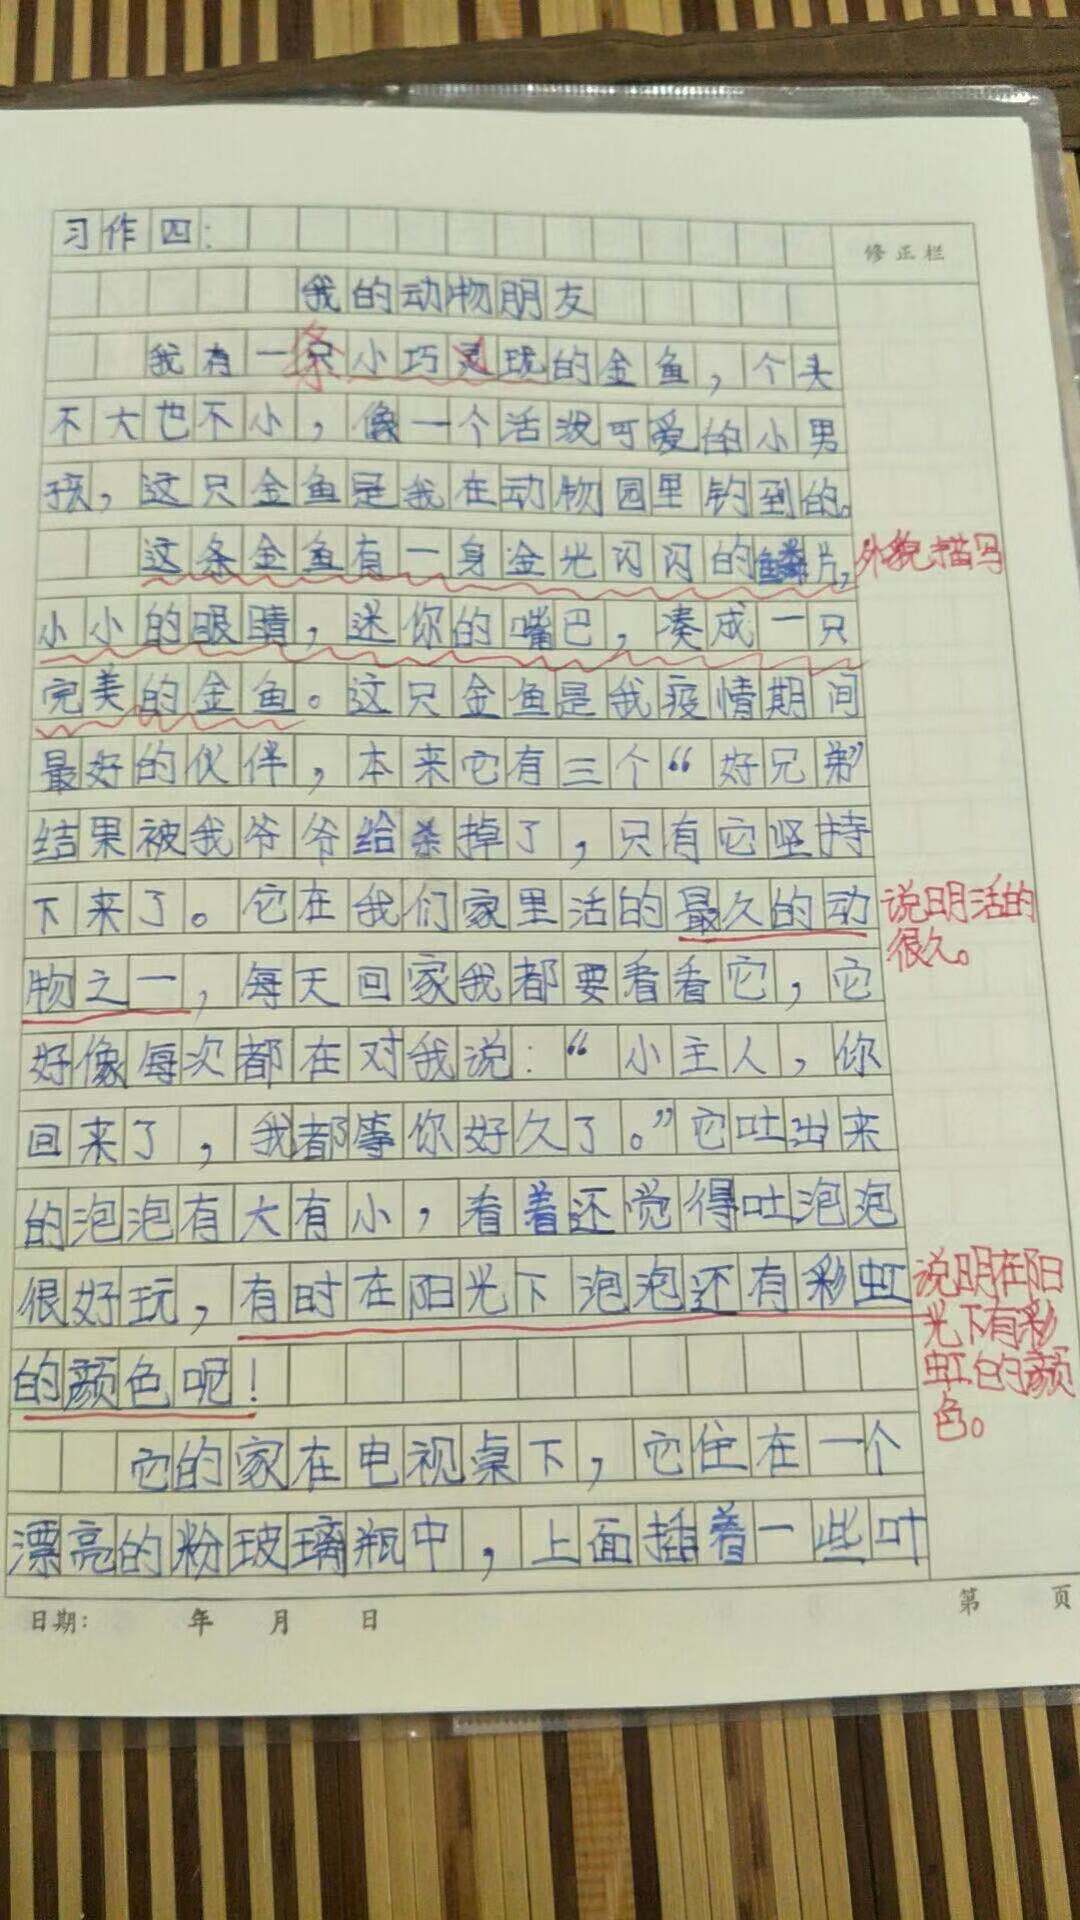 习作四：
修正栏
我的动物朋友
条
我有一只小巧灵珑的金鱼，个头
不大也不小，像一个活泼可爱的小男
孩，这只金鱼是我在动物园里钓到的。
这条金鱼有一身金光闪闪的鳞片，
外貌描写
小小的眼睛，迷你的嘴巴，凑成一只
完美的金鱼。这只金鱼是我疫情期间
最好的伙伴，本来它有三个“好兄弟”
结果被我爷爷给杀掉了，只有它坚持
下来了。它在我们家里活的最久的动
说明活的
很久。
物之一，每天回家我都要看看它，它
好像每次都在对我说：“小主人，你
回来了，我都等你好久了。”它吐出来
的泡泡有大有小，看着还觉得吐泡泡
很好玩，有时在阳光下泡泡还有彩虹
说明在阳
光下有彩
虹的颜
色。
的颜色呢！
它的家在电视桌下，它住在一个
漂亮的粉玻璃瓶中，上面插着一些叶
日期： 年 月 日
第 页